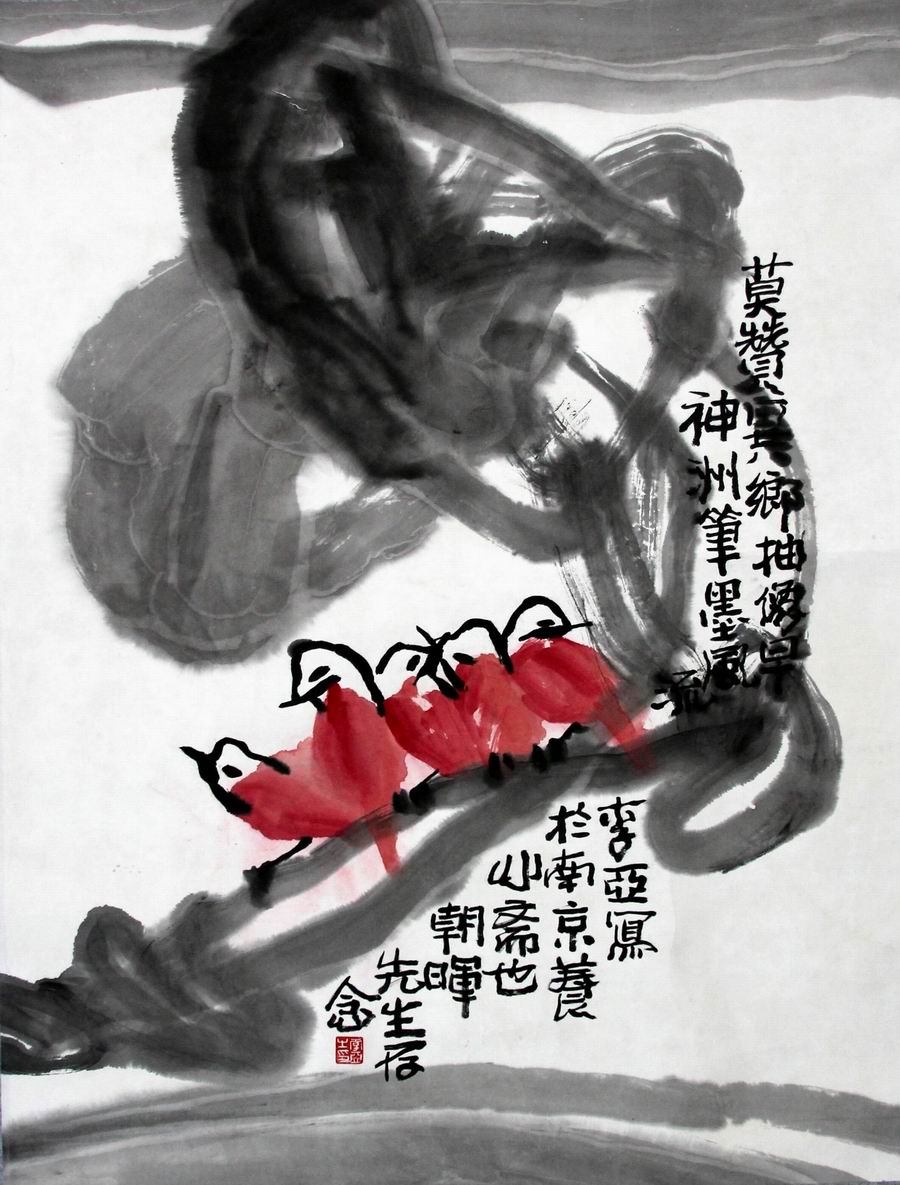 莫贊異鄉抽早
神洲筆墨風流
李亞寫
於南京養
心斋也
朝暉
先生存
念